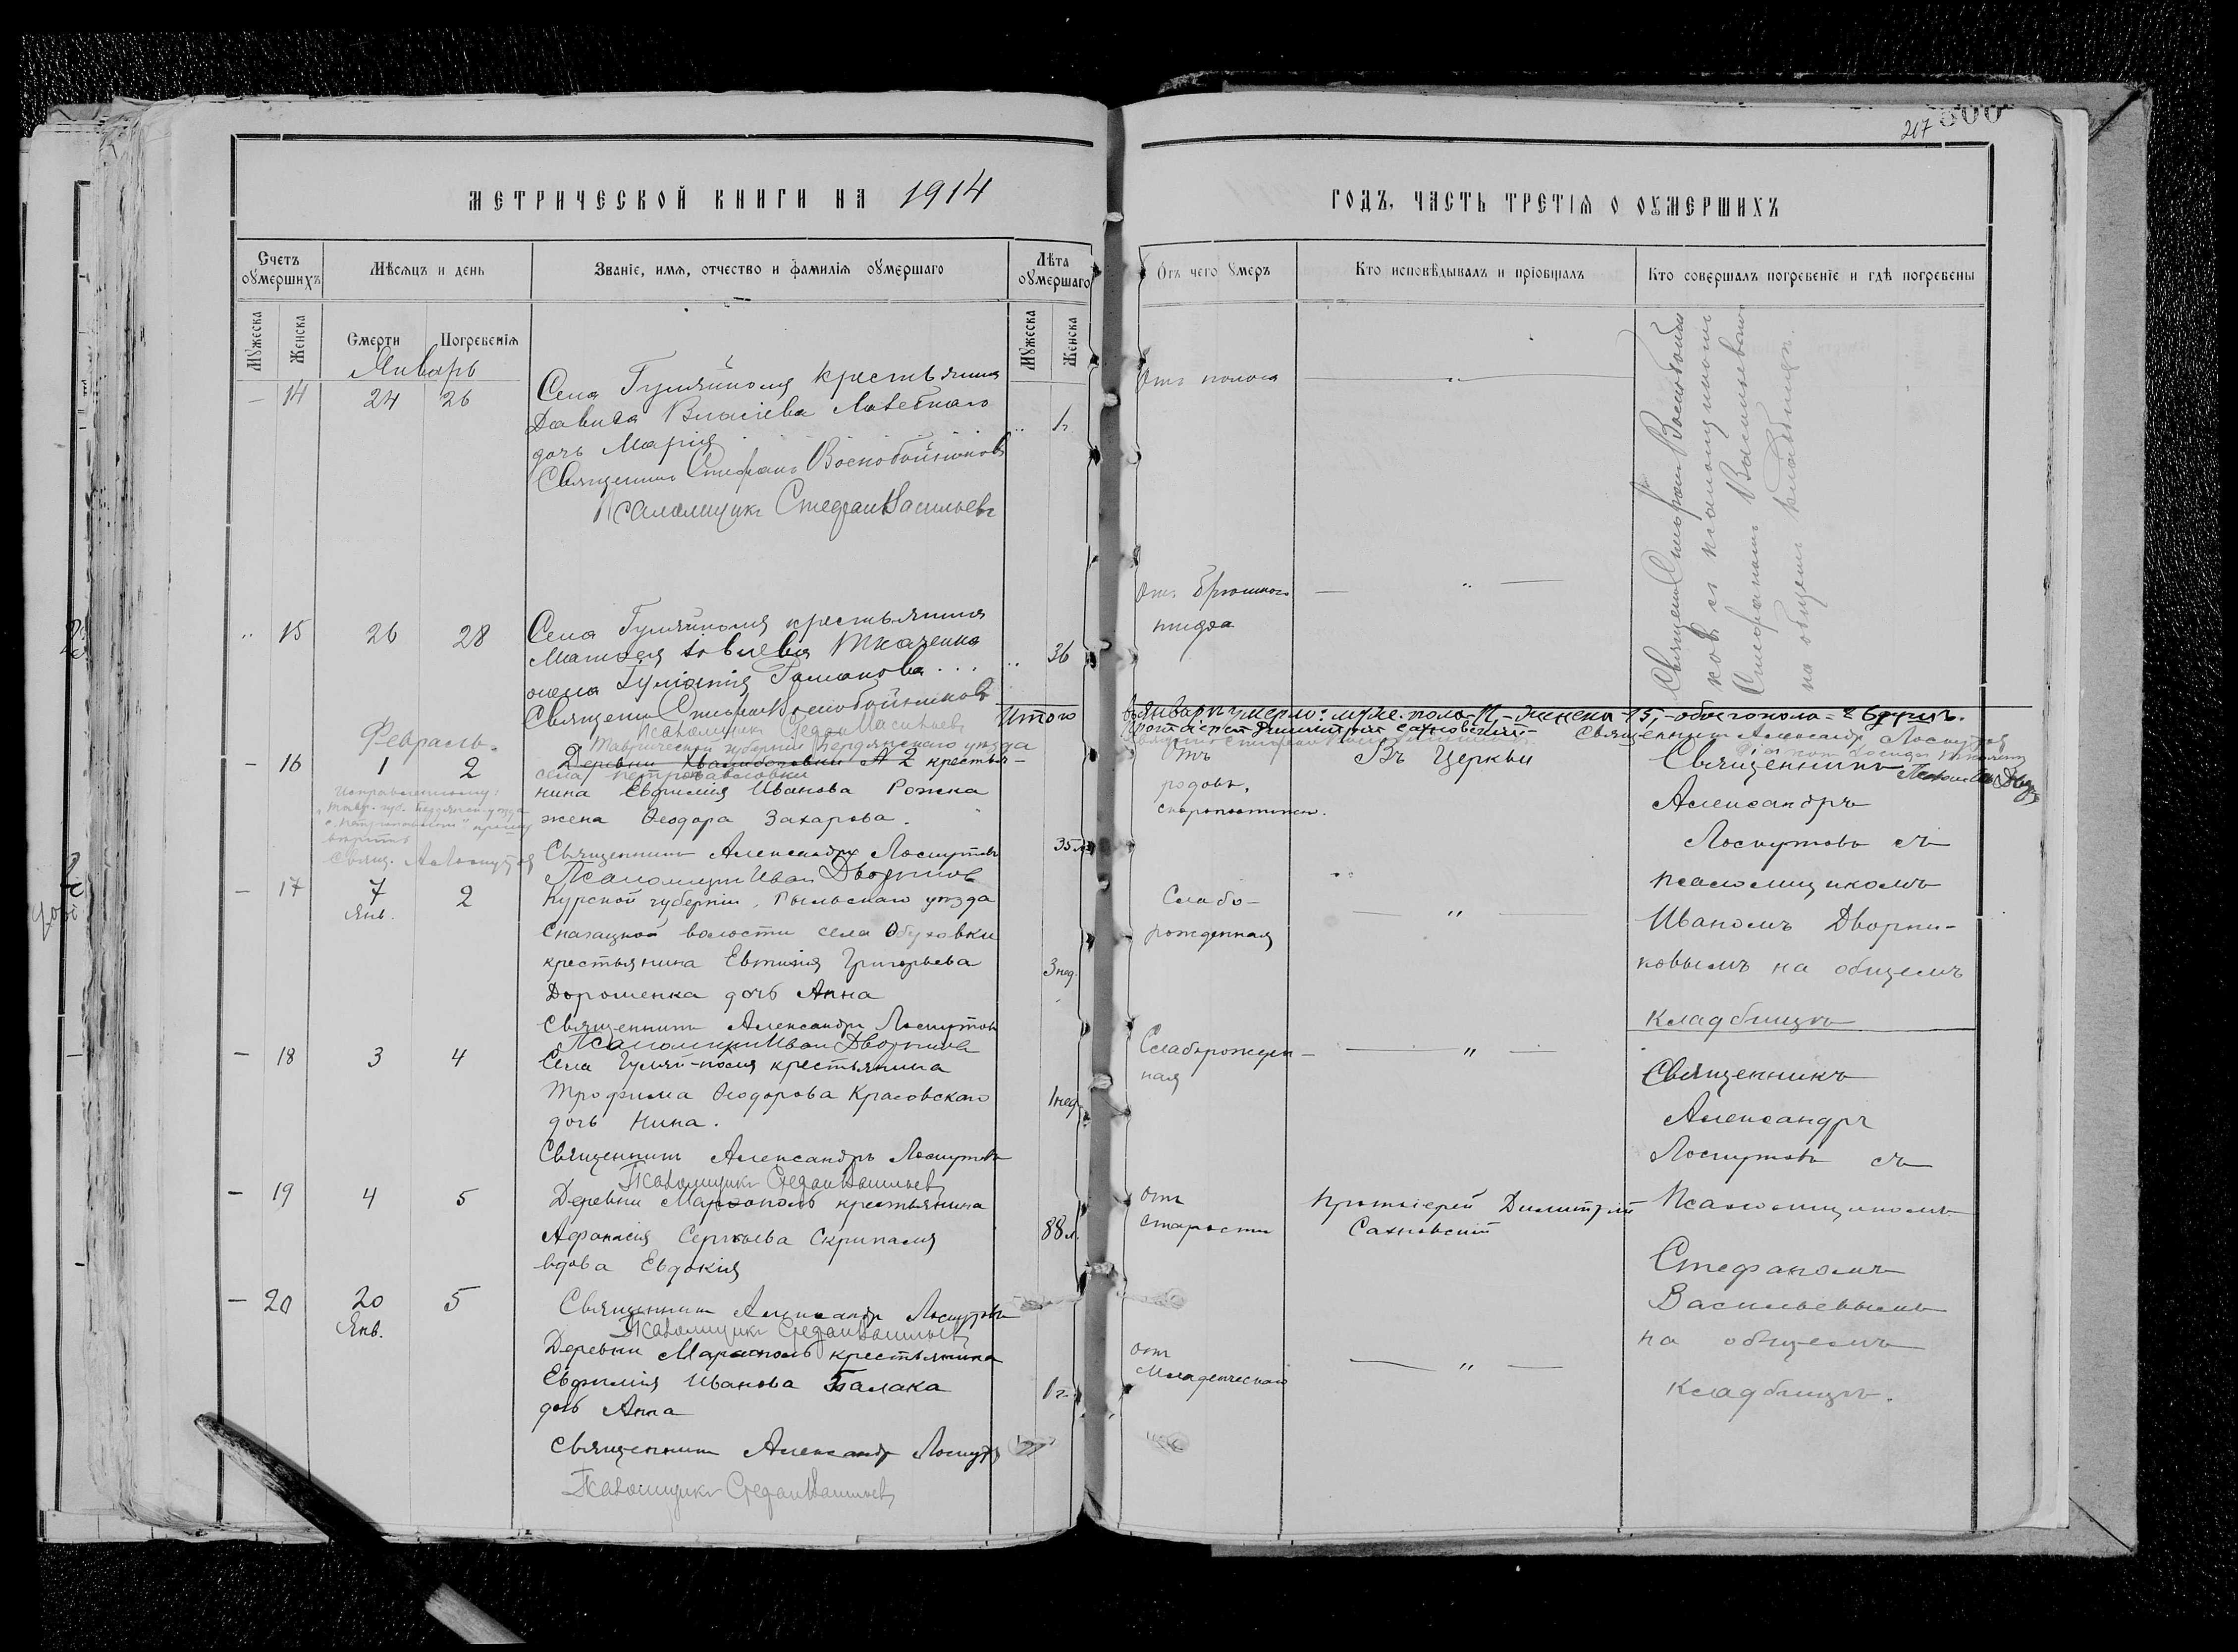 217 300
МЕТРИЧЕСКОЙ КНИГИ НА 1914
ГОДЪ, ЧАСТЬ ТРЕТІЯ О ОУМЕРШИХЪ
Счетъ оумершихъ
Мѣсяцъ и день
Званіе, имя, отчество и фамилія оумершаго
Лѣта оумершаго
Отъ чего умеръ
Кто исповѣдывалъ и пріобщалъ
Кто совершалъ погребеніе и гдѣ погребены
Мужеска
Женска
Смерти
Погребенія
Мужеска
Женска
Январь
— 14 24 26
Села Гуляйполя крестьянина
Давида Власіева
дочь Марія
1 г.
Священникъ Стефанъ Воскобойниковъ
Псаломщикъ Стефанъ Васильевъ
15 26 28
Села Гуляйполя крестьянина
Матѳея Іовлева Ткаченка
жена Романова
36
отъ брюшного
тифа
Священникъ Стефанъ Воскобойниковъ
Псаломщикъ Стефанъ Васильевъ
Священ. Стефанъ Воскобойни
ковъ съ псаломщикомъ
Стефаномъ Васильевымъ
на общемъ кладбищѣ.
Итого
въ Январѣ умерло: муж. пола- женска -15,- обоего пола =
Протоіерей Димитрій Сахновскій
Священникъ Александръ Лоскутовъ
Февраль.
— 16 1 2
Таврической губерніи Бердянскаго уѣзда
Деревни № 2 крестья-
села Петропавловки
нина Евфимія Иванова Рожка
жена Ѳеодора Захарова.
35 л.
Исправленному:
вѣрить
Свящ. А. Лоскутовъ
Священникъ Александръ Лоскутовъ
Псаломщикъ Иванъ Дворниковъ
Отъ
родовъ,
скоропостижно.
Въ Церкви
Священникъ
Александръ
Лоскутовъ съ
псаломщикомъ
Иваномъ Дворни-
ковымъ на общемъ
кладбищѣ
— 17 7 2
Янв.
Курской губерніи, Рыльскаго уѣзда
Снагацкой волости села Обуховки
крестьянина Евтихія Григорьева
Дорошенка дочь Анна
3 нед.
Слабо-
рожденная
Священникъ Александръ Лоскутовъ
Псаломщикъ Иванъ Дворниковъ
— 18 3 4
Села Гуляй-поля крестьянина
Трофима Ѳеодорова Красовскаго
дочь Нина.
1 нед.
Слаборожден-
ная
Священникъ Александръ Лоскутовъ
Псаломщикъ Стефанъ Васильевъ
Священникъ
Александръ
Лоскутовъ съ
Псаломщикомъ
Стефаномъ
Васильевымъ
на общемъ
кладбищѣ.
— 19 4 5
Деревни Марфополь крестьянина
Афанасія Сергіева Скрипаля
вдова Евдокія
88 л.
отъ
старости
Протоіерей Димитрій
Сахновскій
Священникъ Александръ Лоскутовъ
Псаломщикъ Стефанъ Васильевъ
— 20 20 5
Янв.
Деревни Марфополь крестьянина
Евфимія Иванова Балака
дочь Анна
1 г.
отъ
Младенческаго
Священникъ Александръ Лоскутовъ
Псаломщикъ Стефанъ Васильевъ